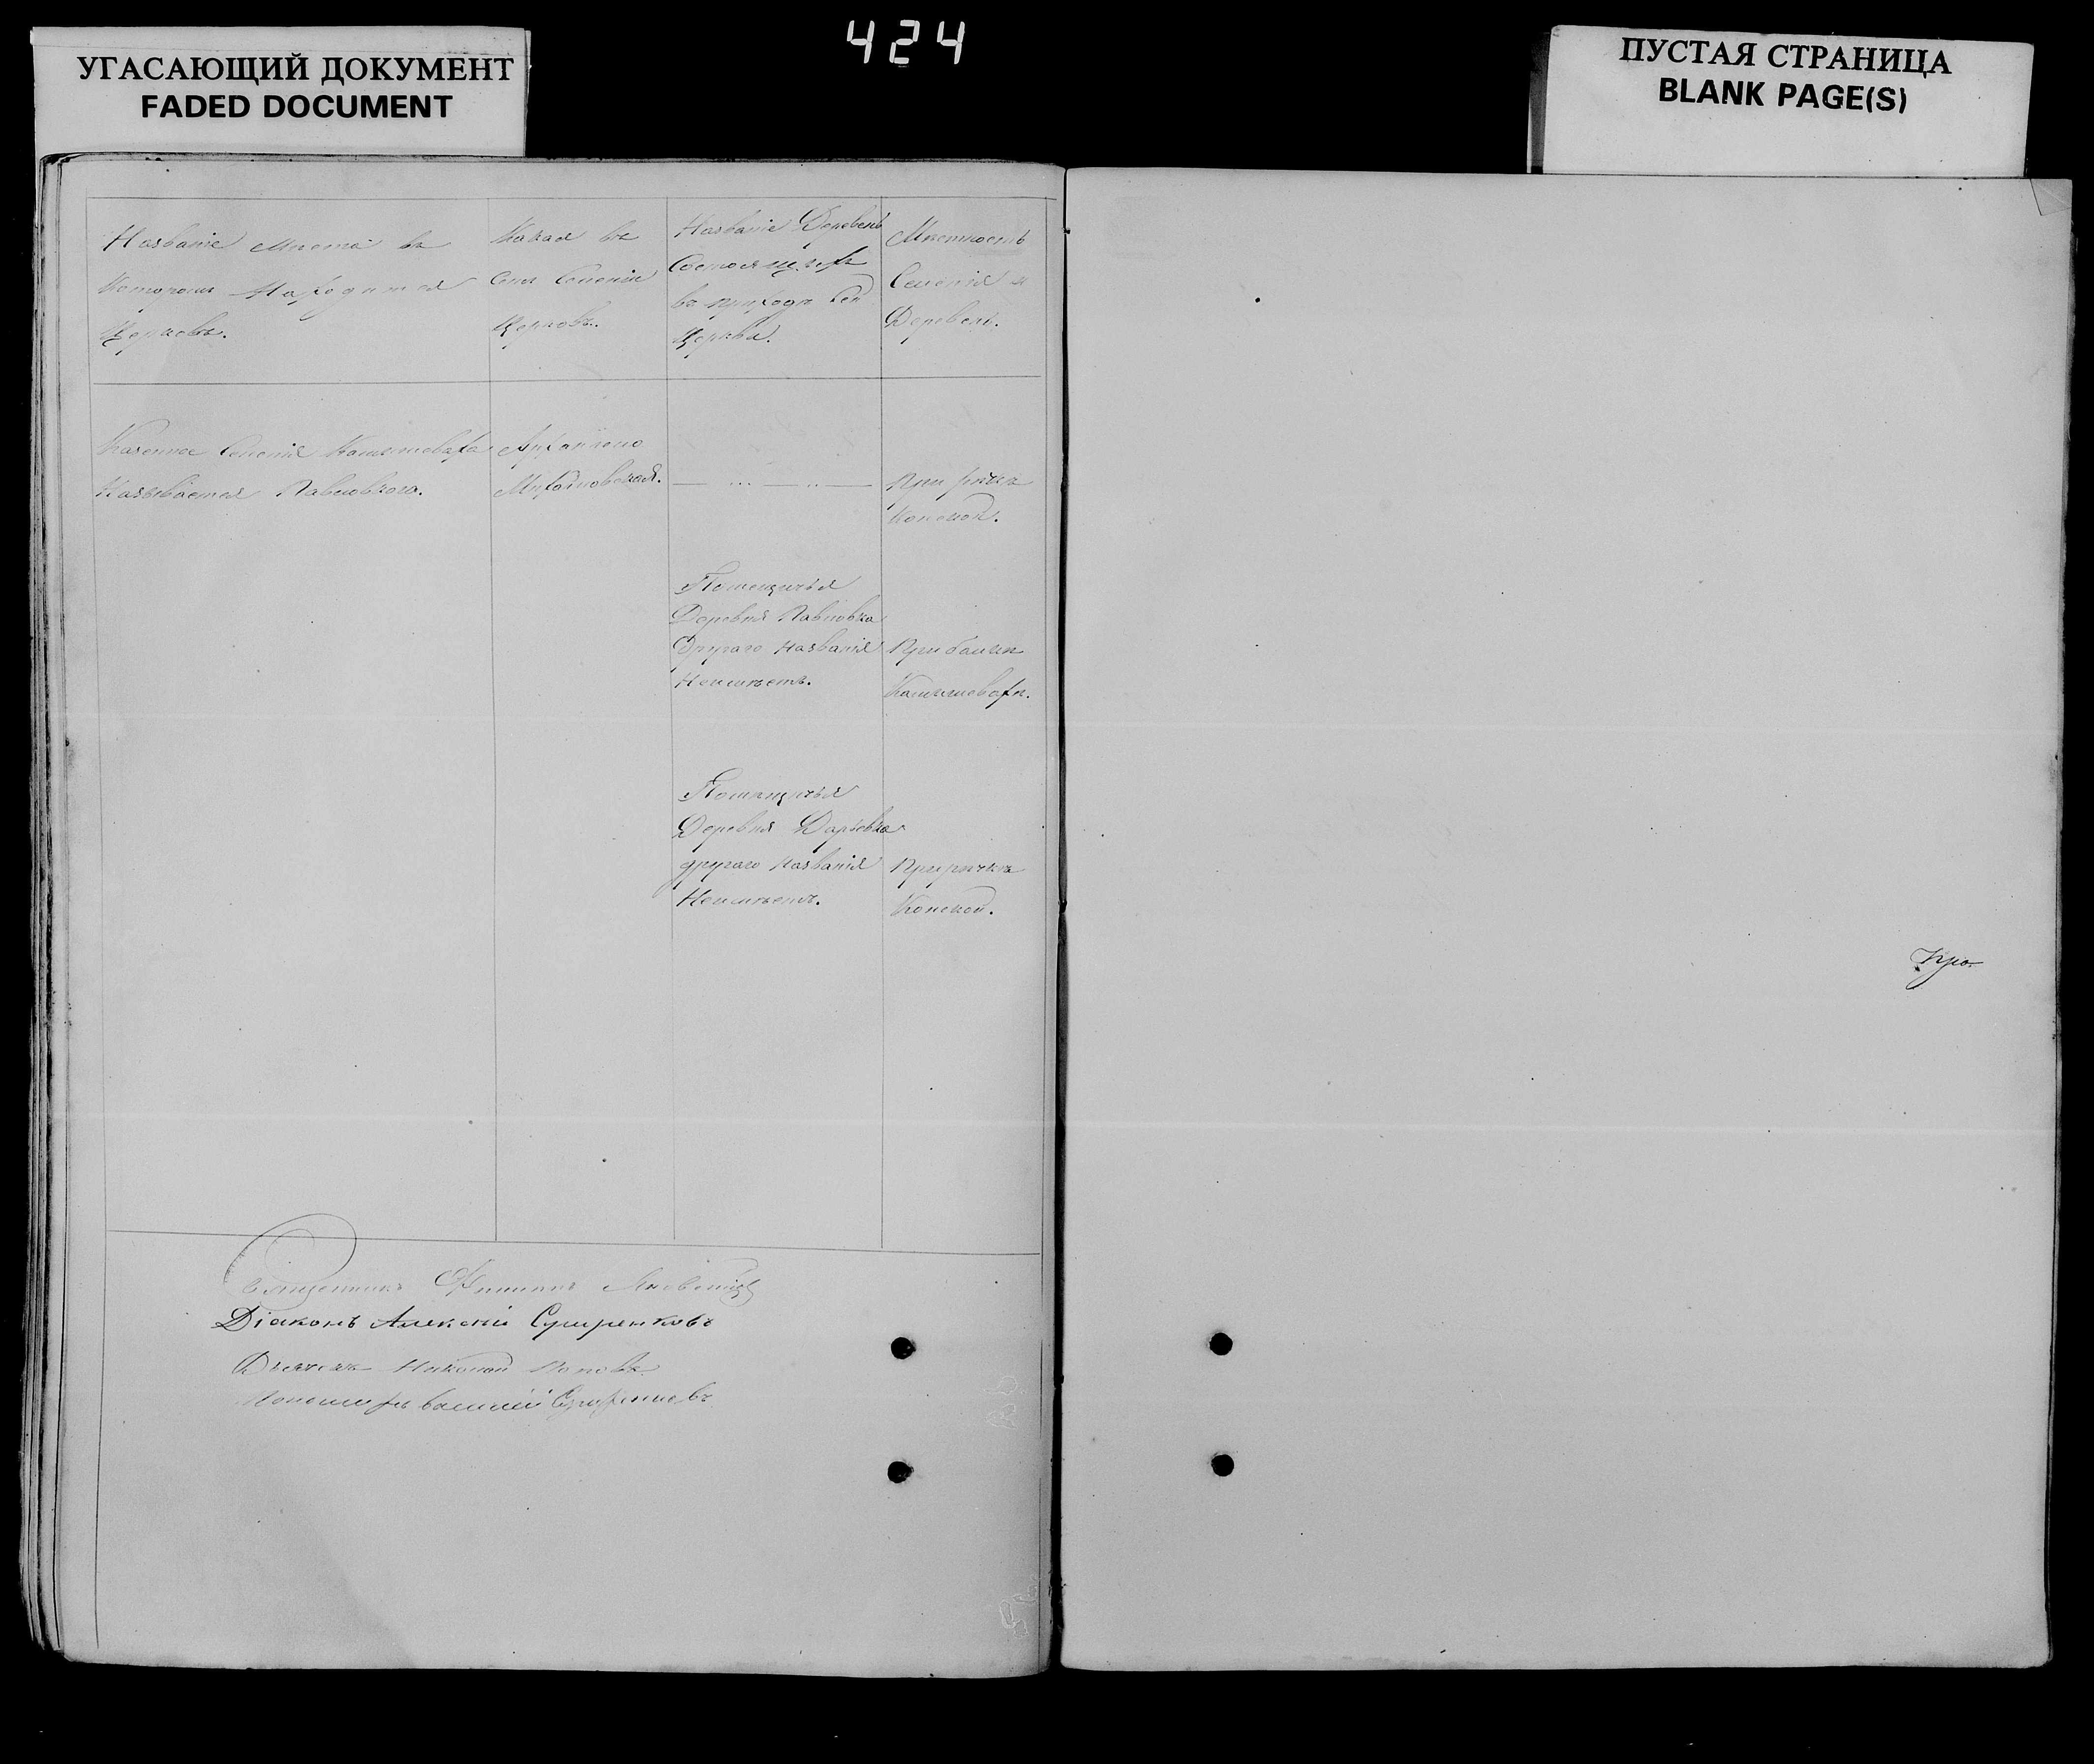 424
УГАСАЮЩИЙ ДОКУМЕНТ
FADED DOCUMENT
ПУСТАЯ СТРАНИЦА
BLANK PAGE(S)
Названіе мѣста въ
которомъ Находится
Церковь.
Какая въ
семъ Селеніи
Церковь.
Названіе Деревень
Состоящихъ
въ приходѣ сей
Церкви.
Мѣстность
Селенія и
Деревень.
Казенное Селеніе Камышеваха
Называется Павловкого.
Архангело
Михайловская.
При рѣчкѣ
Конской.
Помещичья
Деревня Павловка
Другаго названія
Неимѣетъ.
При балкѣ
Камышевахѣ.
Помѣщичья
Деревня Дарьевка
другаго названія
Неимѣетъ.
При рѣчкѣ
Конской.
Священникъ Филиппъ
Діаконъ Алексій Сушренковъ
Дьячекъ Николай Поповъ
Пономарь Василий